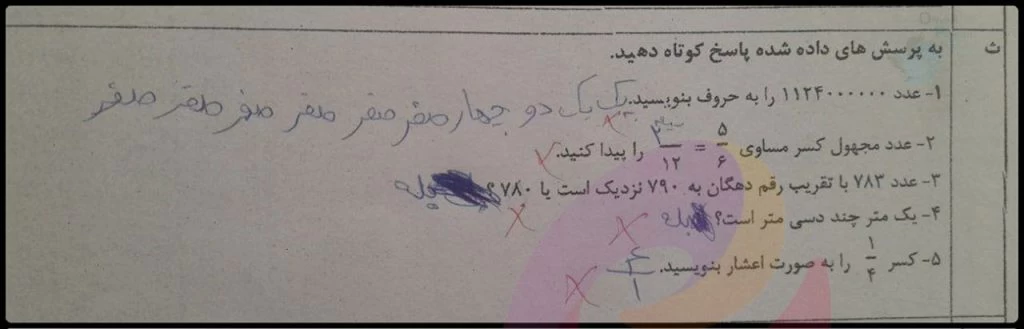 ث
به پرسش های داده شده پاسخ کوتاه دهید.
۱- عدد ۱۱۲۴۰۰۰۰۰۰ را به حروف بنویسید. یک یک دو چهار صفر صفر صفر صفر صفر صفر
۲- عدد مجهول کسر مساوی ۵/۶ = /۱۲ را پیدا کنید.
۳- عدد ۷۸۳ با تقریب رقم دهگان به ۷۹۰ نزدیک است یا ۷۸۰؟ بله
۴- یک متر چند دسی متر است؟ بله
۵- کسر ۱/۴ را به صورت اعشار بنویسید. ۴/۱